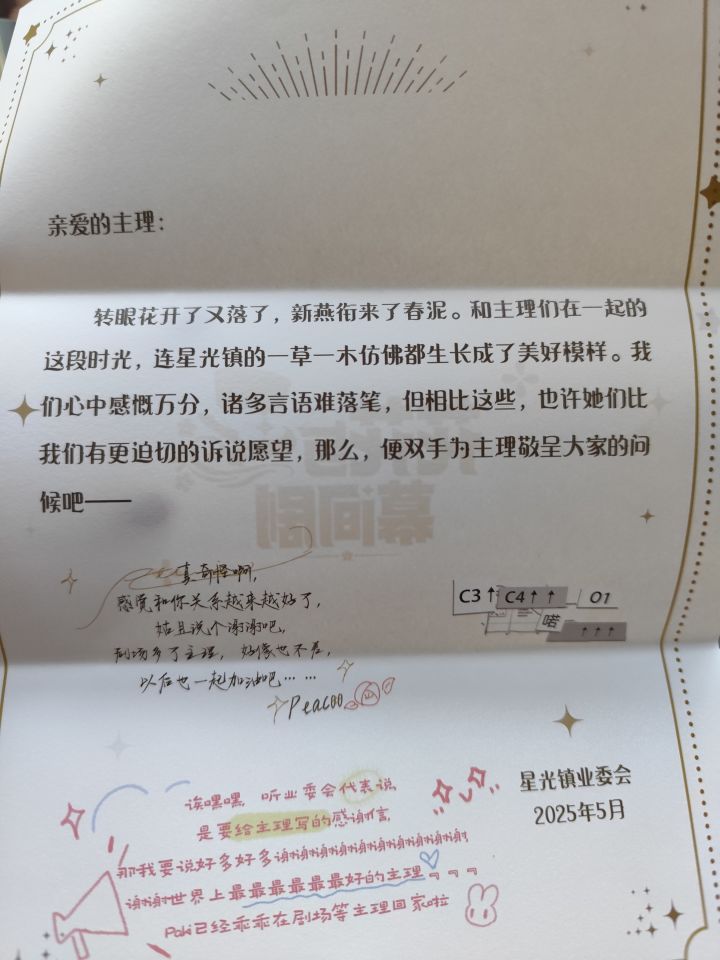 亲爱的主理：
转眼花开了又落了，新燕衔来了春泥。和主理们在一起的
这段时光，连星光镇的一草一木仿佛都生长成了美好模样。我
们心中感慨万分，诸多言语难落笔，但相比这些，也许她们比
我们有更迫切的诉说愿望，那么，便双手为主理敬呈大家的问
候吧——
真奇怪啊，
感觉和你关系越来越好了，
姑且说个谢谢吧。
剧场多了主理，好像也不差，
以后也一起加油吧……
Peacoo
C3↑ C4↑↑ 01
喏
↑↑↑
星光镇业委会
2025年5月
诶嘿嘿，听业委会代表说
是要给主理写的感谢信，
那我要说好多好多谢谢谢谢谢谢谢谢谢谢谢，
谢谢世界上最最最最最最好的主理~~~
Poki已经乖乖在剧场等主理回家啦